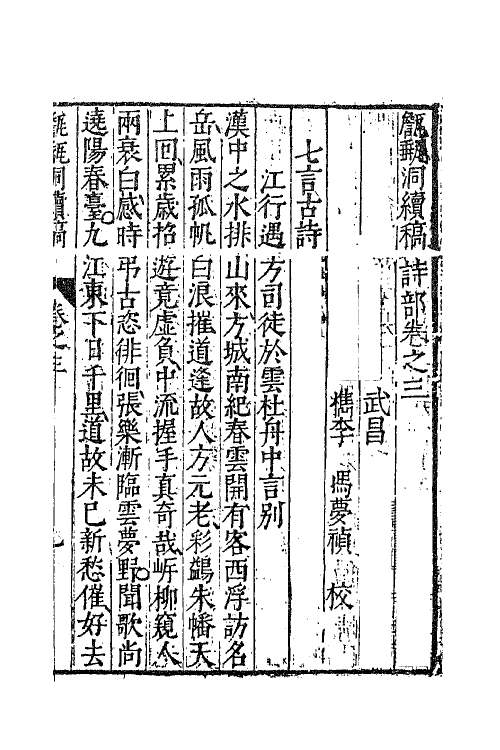 甔甀洞續稿詩部卷之三
武昌
檇李 馮夢禎 校
七言古詩
江行遇方司徒於雲杜舟中言別
漢中之水排山來方城南紀春雲開有客西浮訪名
岳風雨孤帆白浪摧道逢故人方元老彩鷁朱幡天
上回累歲招遊竟虛負中流握手真奇哉岍柳窺人
兩衰白感時弔古恣徘徊張樂漸臨雲夢野聞歌尚
遶陽春臺九江東下日千里道故未已新愁催好去
甔甀洞續稿 卷之三